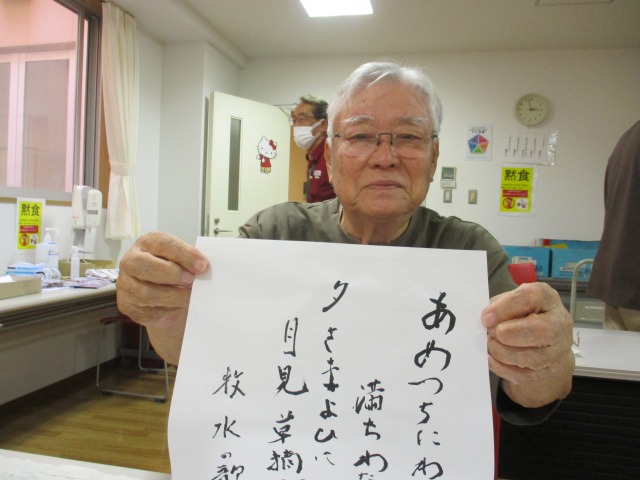 あめつちにわ
満ちわた
夕さまよひに
月見草摘
牧水の歌
黙食
黙食